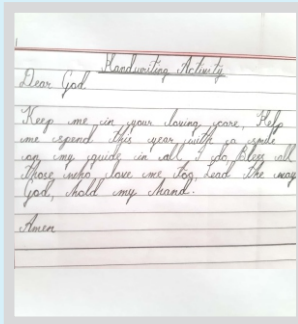 Handwriting Activity
Dear God
Keep me in your loving care, Help
me spend this year with a smile
on my guide in all I do Bless all
those who love me too, Lead the way
God, hold my hand.
Amen